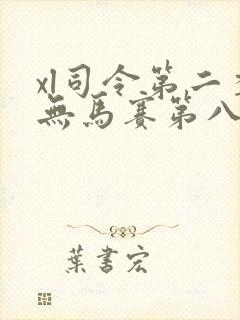 xl司令第二
無馬賽第八
葉書宏